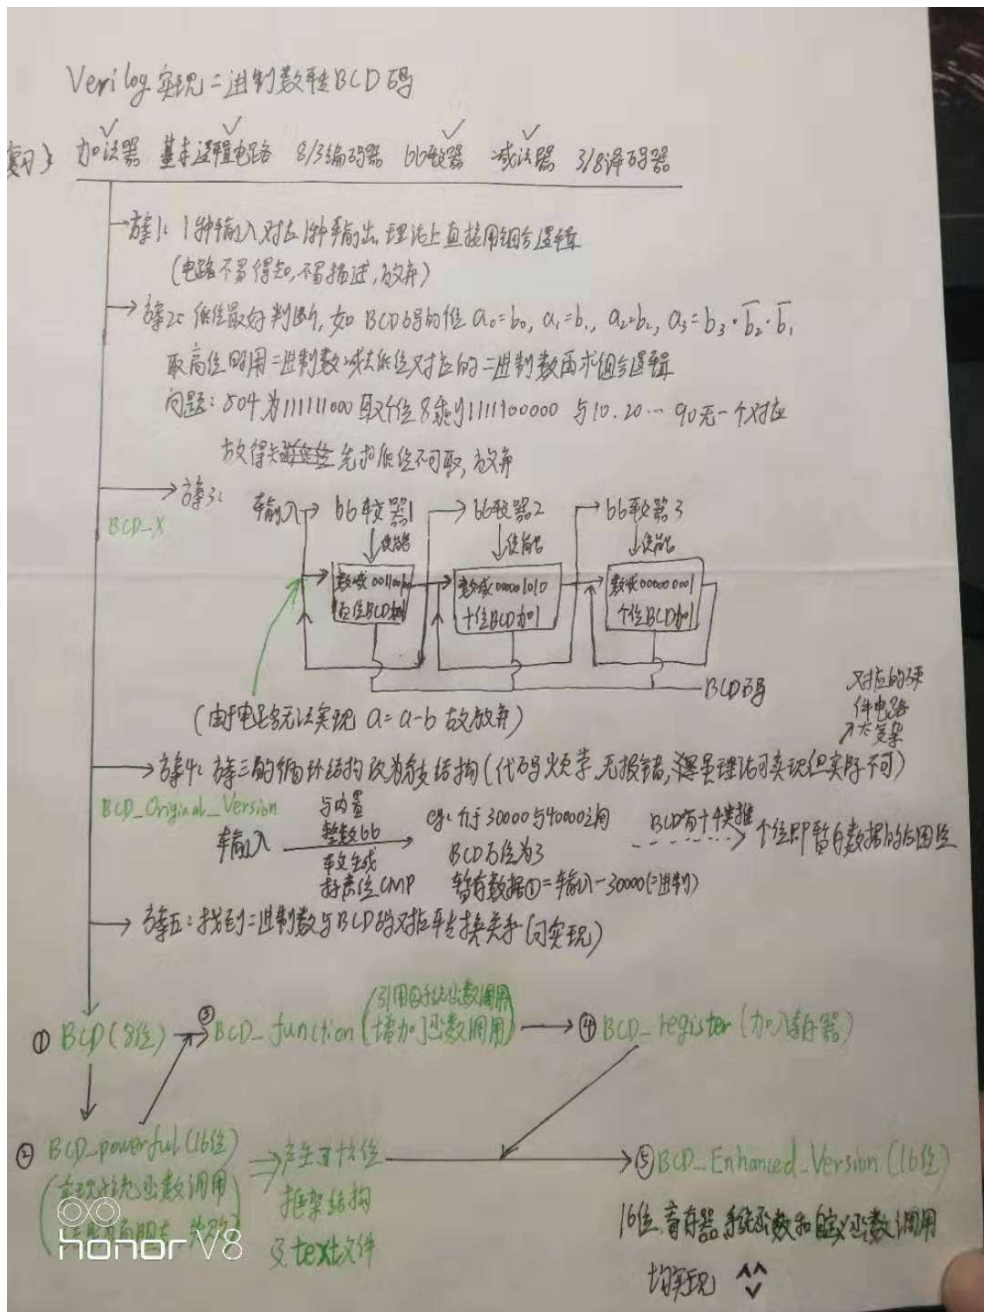 Verilog 实现二进制数转BCD码
复习: 加法器 基本逻辑电路 8/3编码器 比较器 减法器 3/8译码器
方案1: 1种输入对应1种输出, 理论上直接用组合逻辑
(电路不易得知, 不易描述, 放弃)
方案2: 低位最好判断, 如 BCD码的低位 a₀=b₀, a₁=b₁, a₂=b₂, a₃=b₃·b̅₂·b̅₁
取高位时用二进制数减去低位对应的二进制数再求组合逻辑
问题: 504为111111000 取个位8剩1111100000 与10.20…90无一个对应
故得知 先求低位不可取, 放弃
方案3:
BCD_X
输入 比较器1 比较器2 比较器3
使能 使能 使能
数减00110100 数减00001010 数减00000001
百位BCD加1 十位BCD加1 个位BCD加1
BCD码
(由于电路无法实现 a=a-b 故放弃)
对应的硬
件电路
太复杂
方案4: 方案三的循环结构改为 结构(代码 , 无报错, 理论可实现但实际不可)
BCD_Original_Version
输入
与内置
整数比
较生成
标志位CMP
eg: 介于30000与40000之间
BCD万位为3
暂存数据①=输入-30000(二进制)
BCD百十千类推
个位即暂存数据的后四位
方案五: 找到二进制数与BCD码对应转换关系(可实现)
① BCD(8位)
③ BCD_function (引用 系统函数调用
增加了函数调用)
④ BCD_register (加入寄存器)
② BCD_powerful(16位)
(实现系统函数调用
失败)
产生了十位
框架结构
及text文件
⑤ BCD_Enhanced_Version (16位)
16位 寄存器 系统函数和自定义函数调用
均实现 ^^
honor V8